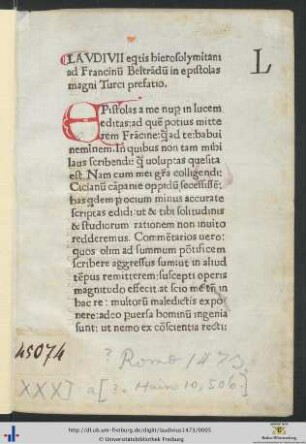 LAVDIVII eq̄tis hierosolymitani
ad Francinū Beltrādū in epistolas
magni Turci prefatio.
L
EPistolas a me nup̱ in lucem
editas: ad quē potius mitte
rem Frācine: q̄ ad te: habui
neminem. In quibus non tam mihi
laus scribendi: q̄ uoluptas quesita
est. Nam cum mei gr̄a colligendi:
Cicianū cāpanie oppidū secessissē:
has qdem p̱ ocium minus accurate
scriptas edidi: ut & tibi solitudinis
& studiorum rationem non inuito
redderemus. Commētarios uero:
quos olim ad summum pōtificem
scribere aggressus sum: ut in aliud
tēpus remitterem: suscepti operis
magnitudo effecit. at scio me tn̄ in
hac re: multorū maledictis expo
nere: adeo puersa hominū ingenia
sunt: ut nemo ex cōscientia recti:
45074
? Rome 1473
XXXI a [? Hain 10,506.]
http://dl.ub.uni-freiburg.de/diglit/laudivius1473/0005
© Universitätsbibliothek Freiburg